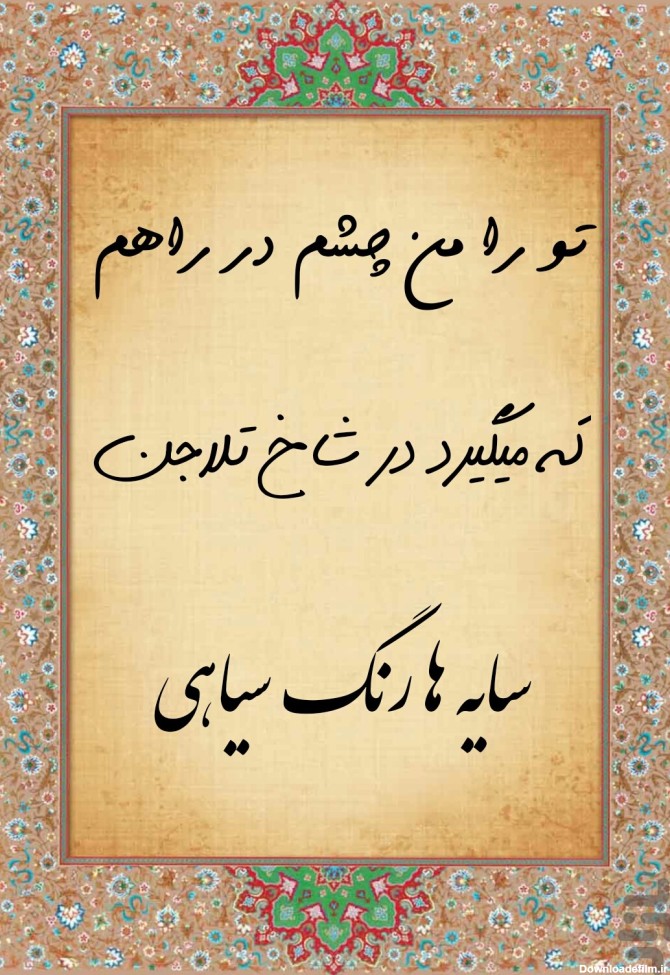 تو را من چشم در راهم
که میگیرد در شاخ تلاجن
سایه ها رنگ سیاهی
Downloadefilm.ir